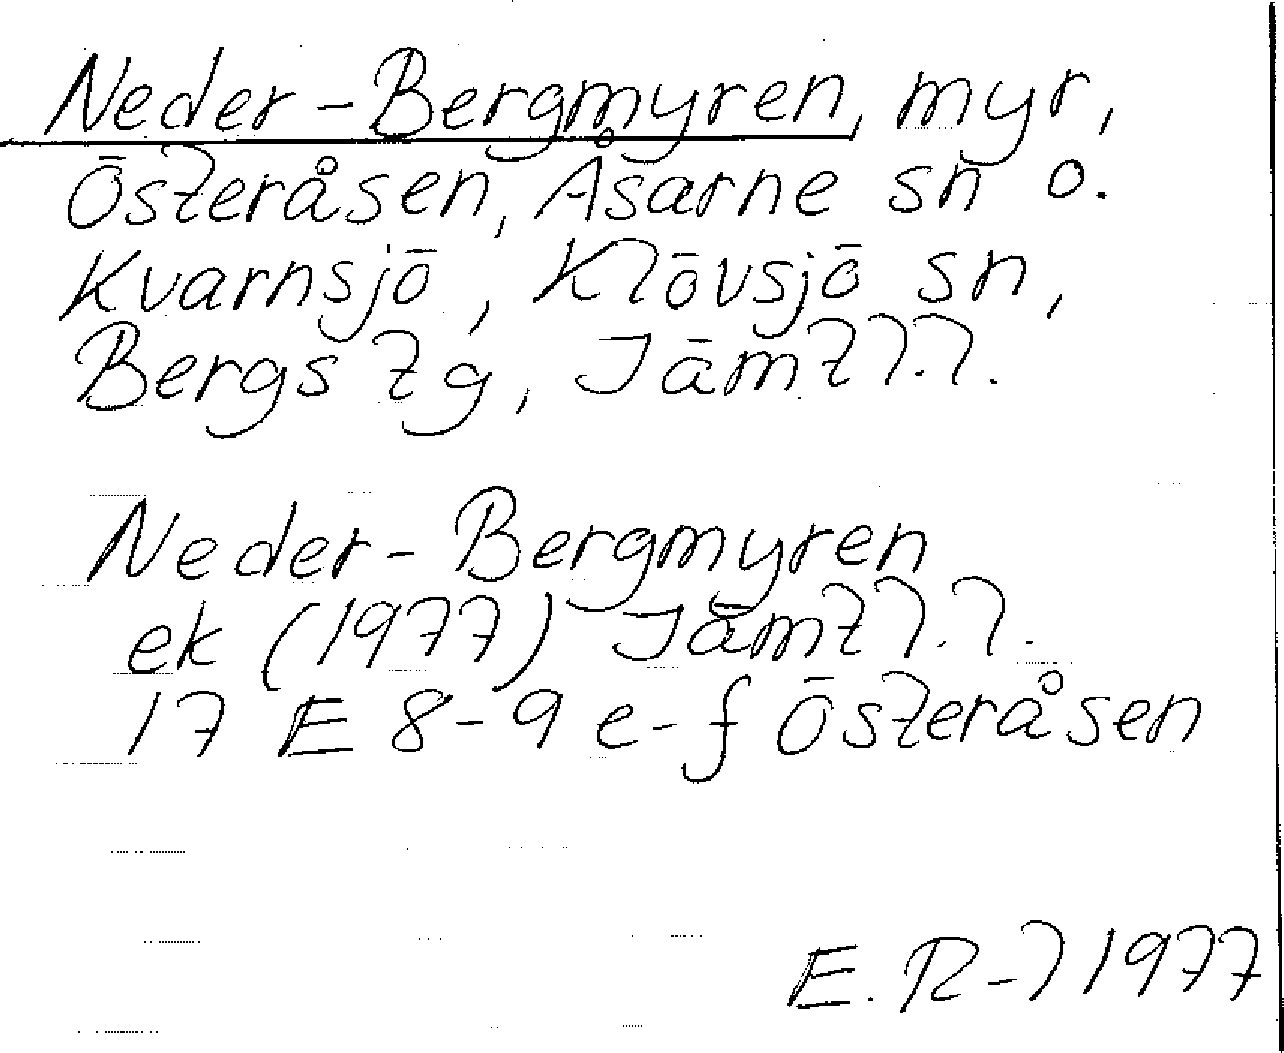 Neder-Bergmyren, myr,
Österåsen, Åsarne sn o.
Kvarnsjö, Klövsjö sn,
Bergs tg, Jämtl.l.
Neder-Bergmyren
ek (1977) Jämtl.l.
17 E 8-9 e-f Österåsen
E.R-l 1977